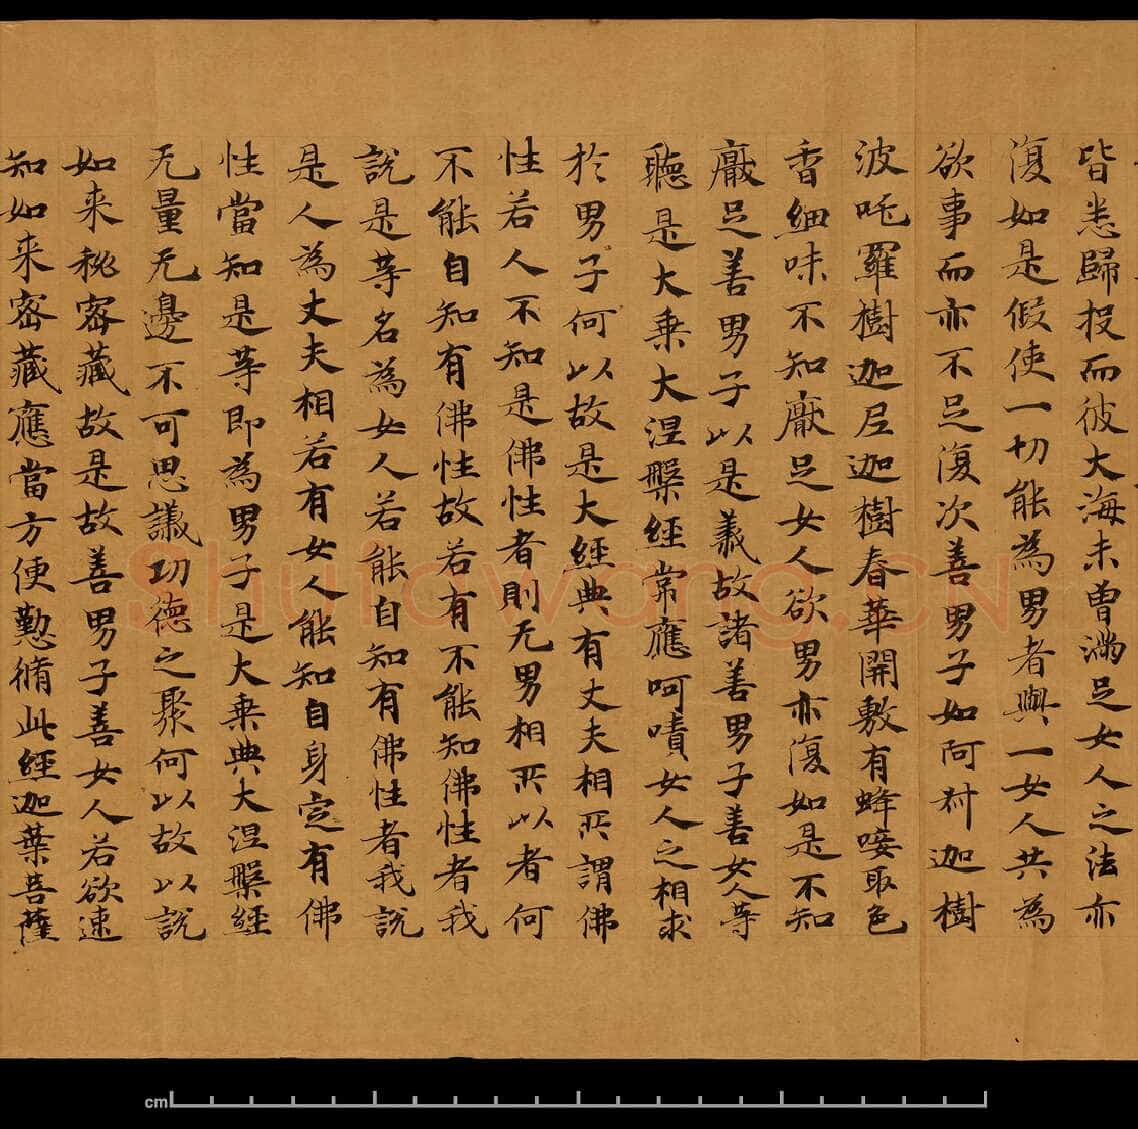 皆悉歸投而彼大海未曾滿足女人之法亦
復如是假使一切能為男者與一女人共為
欲事而亦不足復次善男子如阿叔迦樹
波吒羅樹迦尼迦樹春華開敷有蜂唼取色
香細味不知厭足女人欲男亦復如是不知
厭足善男子以是義故諸善男子善女人等
聽是大乘大涅槃經常應呵嘖女人之相求
於男子何以故是大經典有丈夫相所謂佛
性若人不知是佛性者則无男相所以者何
不能自知有佛性故若有不能知佛性者我
說是等名為女人若能自知有佛性者我說
是人為丈夫相若有女人能知自身定有佛
性當知是等即為男子是大乘典大涅槃經
无量无邊不可思議功德之聚何以故以說
如来秘密藏故是故善男子善女人若欲速
知如来密藏應當方便懃脩此經迦葉菩薩
Shufawang.CN
cm